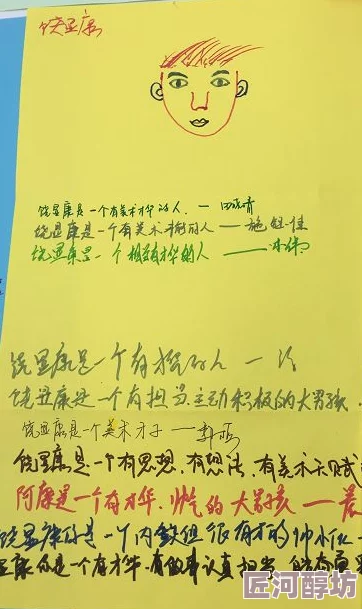 饶显康
饶显康是一个有美术才华的人。——
饶显康是一个有美术才能的人——施
饶显康是一个很有才华的人——
饶显康是一个有才的人——
饶显康是一个有担当主动积极的大男孩.
饶显康是一个美术才子——
饶显康是一个有思想、有想法、有美术天赋
阿康是一个有才华、帅气的大男孩——
饶显康你是一个内敛但很有才的帅小伙——
显康你是一个有才华、有做事认真担当
匠河醇坊